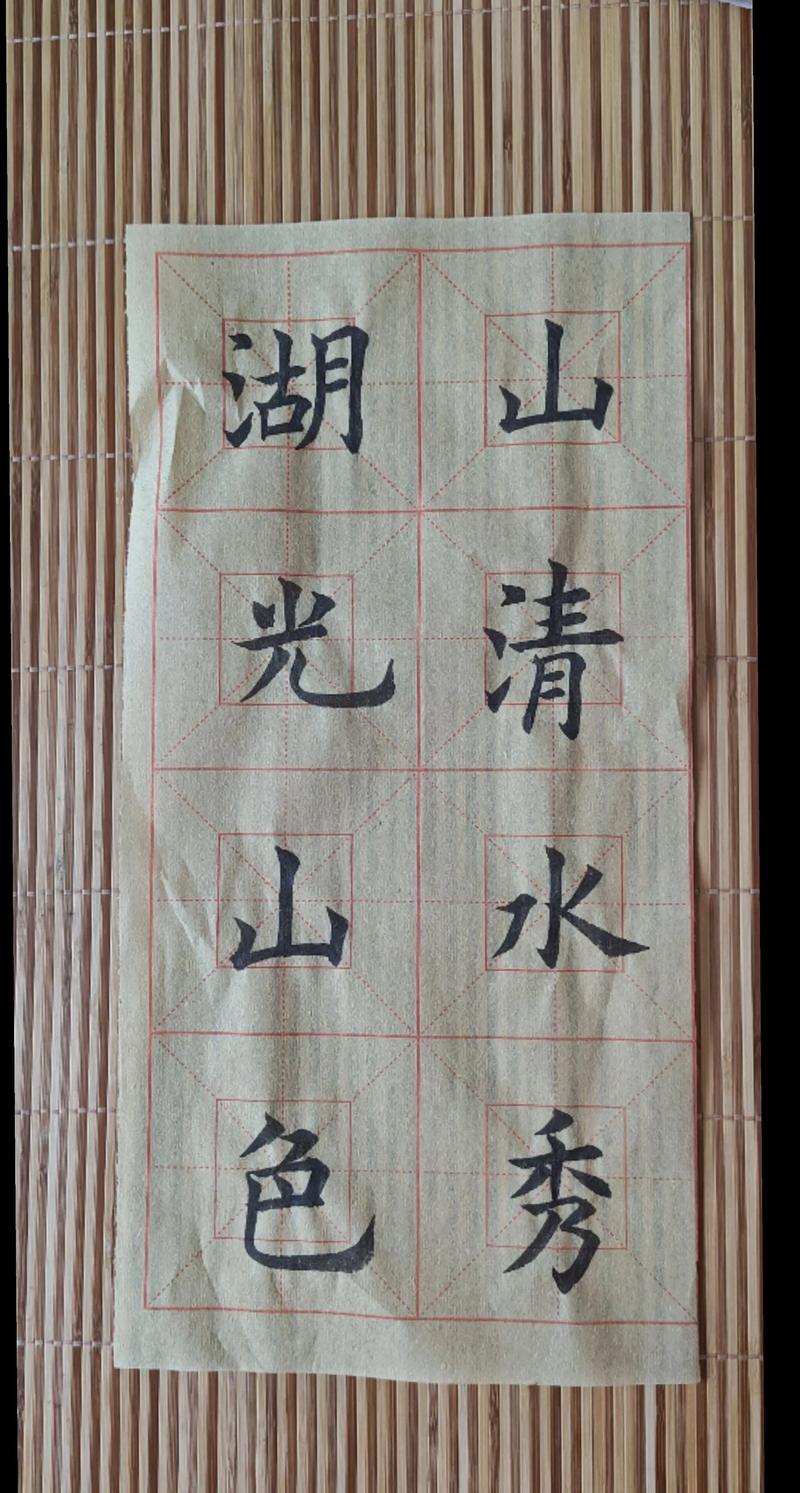 山清水秀
湖光山色